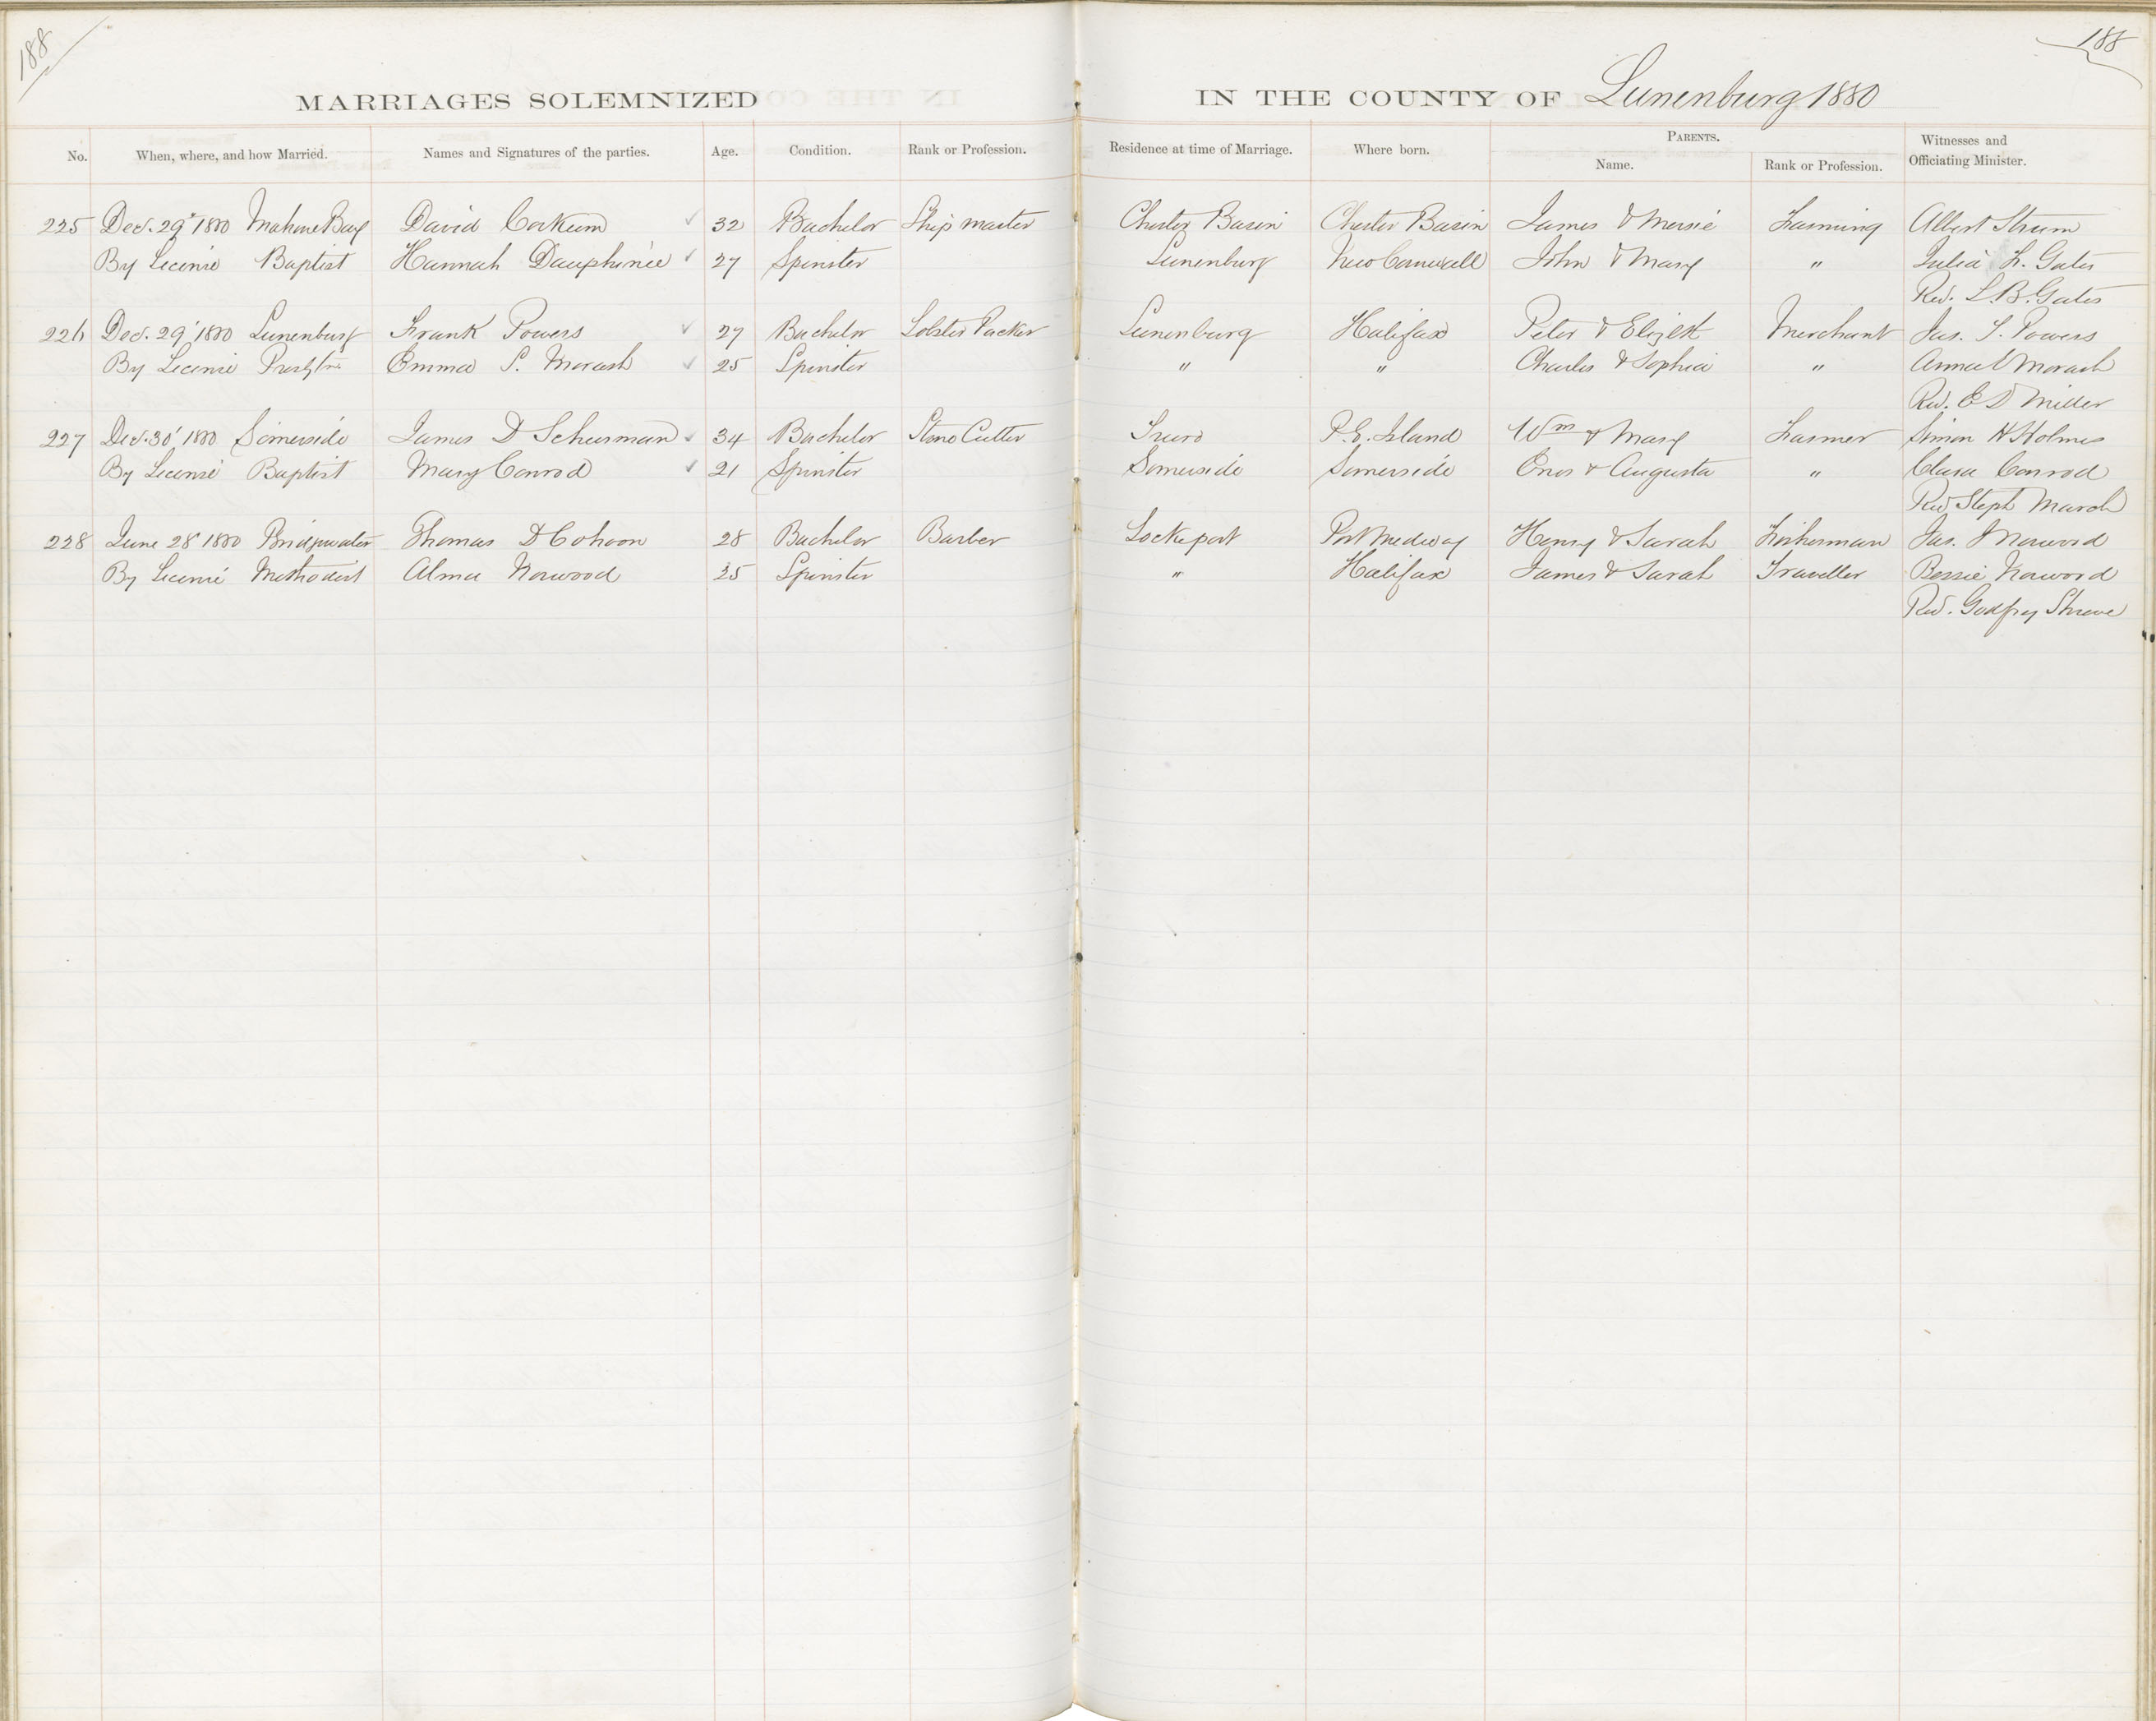 188
188
MARRIAGES SOLEMNIZED IN THE COUNTY OF Lunenburg 1880
No. When, where, and how Married. Names and Signatures of the parties. Age. Condition. Rank or Profession. Residence at time of Marriage. Where born. PARENTS. Name. Rank or Profession. Witnesses and Officiating Minister.
225 Dec. 29' 1880 Mahone Bay David Corkum 32 Bachelor Ship master Chester Basin Chester Basin James & Mersie Farming Albert Strum
By License Baptist Hannah Dauphinee 27 Spinster Lunenburg New Cornwall John & Mary " Julia F. Gates
Rev. L.B. Gates
226 Dec. 29' 1880 Lunenburg Frank Powers 27 Bachelor Lobster Packer Lunenburg Halifax Peter & Elizth Merchant Jas. T. Powers
By License Emma S. Morash 25 Spinster " " Charles & Sophia " Morash
Rev. E D Miller
227 Dec. 30' 1880 Somerside James D Schurman 34 Bachelor Stone Cutter Truro P.E. Island Wm & Mary Farmer Simon H Holmes
By License Baptist Mary Conrod 21 Spinster Somerside Somerside Enos & Augusta " Clara Conrod
Rev Steph March
228 June 28 1880 Bridgewater Thomas D Cohoon 28 Bachelor Barber Lockeport Port Medway Henry & Sarah Fisherman Jas. Norwood
By License Methodist Alma Norwood 25 Spinster " Halifax James & Sarah Traveller Bessie Norwood
Rev. Godfrey Shreve